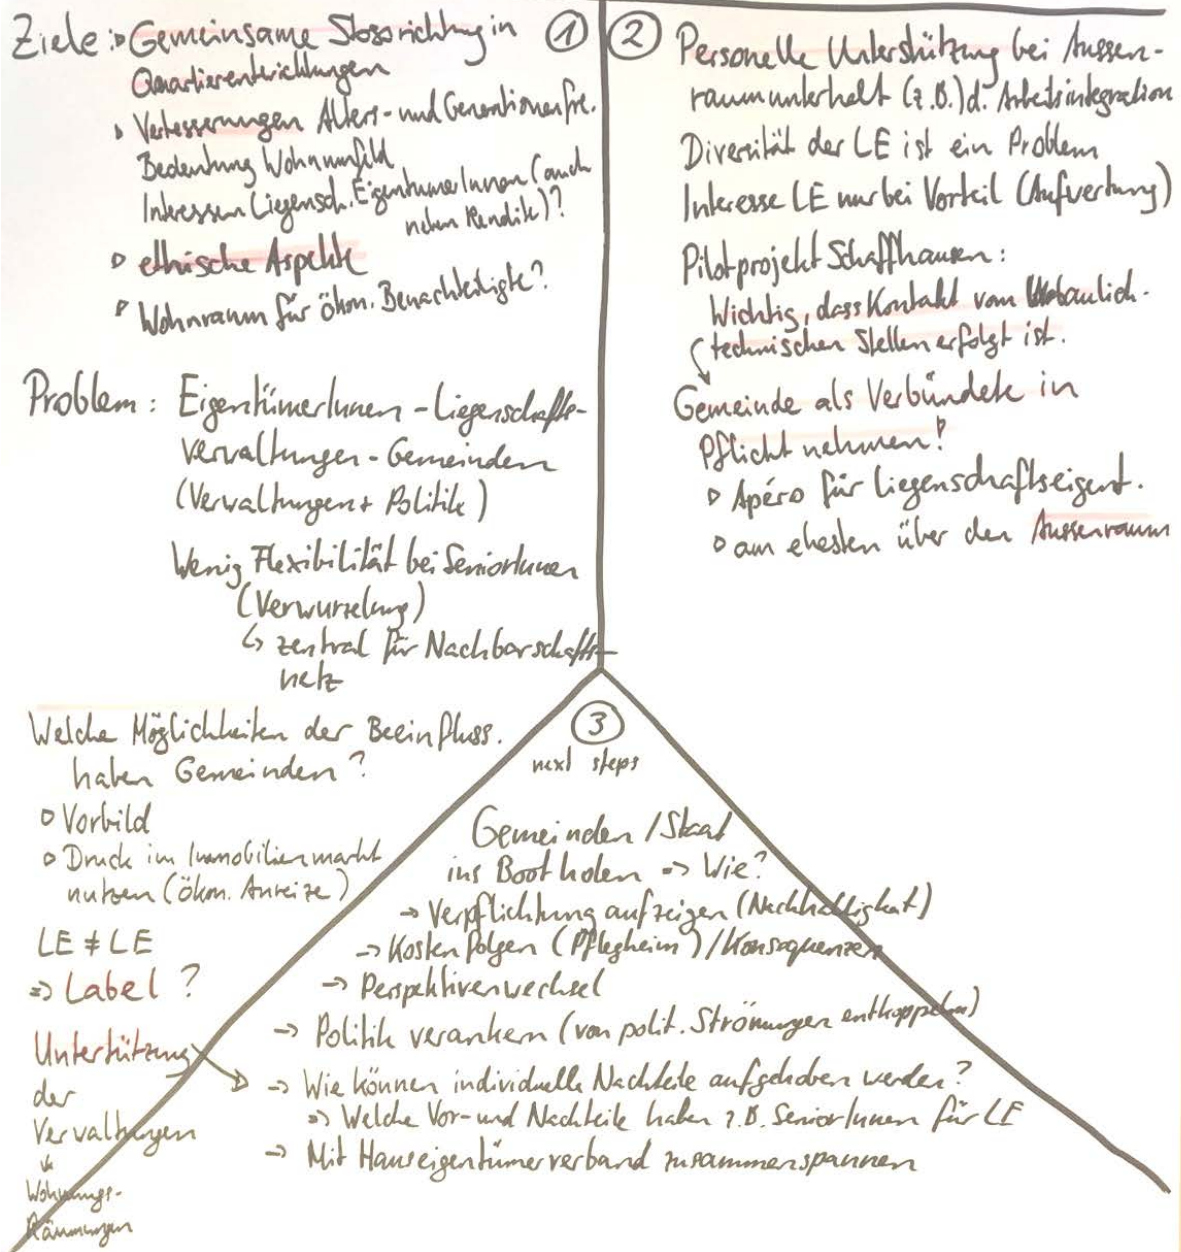 Ziele: Gemeinsame Stossrichtung in ①
Quartierentwicklungen
Verbesserungen Alters- und Generationenfre.
Bedeutung Wohnumfeld
Interessen Liegensch. EigentümerInnen (auch
neben Rendite)?
ethische Aspekte
Wohnraum für ökon. Benachteiligte?
Problem: EigentümerInnen - Liegenschafts-
verwaltungen - Gemeinden
(Verwaltungen + Politik)
Wenig Flexibilität bei SeniorInnen
(Verwurzelung)
↳ zentral für Nachbarschafts-
netz
Welche Möglichkeiten der Beeinfluss.
haben Gemeinden?
Vorbild
Druck im Immobilienmarkt
nutzen (ökon. Anreize)
LE ≠ LE
⇒ Label?
Unterstützung
der
Verwaltungen
Wohnungs-
Räumungen
② Personelle Unterstützung bei Aussen-
raumunterhalt (z.B.) d. Arbeitsintegration
Diversität der LE ist ein Problem
Interesse LE nur bei Vorteil (Aufwertung)
Pilotprojekt Schaffhausen:
Wichtig, dass Kontakt von baulich-
technischen Stellen erfolgt ist.
Gemeinde als Verbündete in
Pflicht nehmen!
Apéro für Liegenschaftseigent.
am ehesten über den Aussenraum
③
next steps
Gemeinden / Staat
ins Boot holen ⇒ Wie?
→ Verpflichtung aufzeigen (Nachhaltigkeit)
→ Kostenfolgen (Pflegheim) / Konsequenzen
→ Perspektivenwechsel
→ Politik verankern (von polit. Strömungen entkoppeln)
→ Wie können individuelle Nachteile aufgehoben werden?
⇒ Welche Vor- und Nachteile haben z.B. SeniorInnen für LE
→ Mit Hauseigentümerverband zusammenspannen